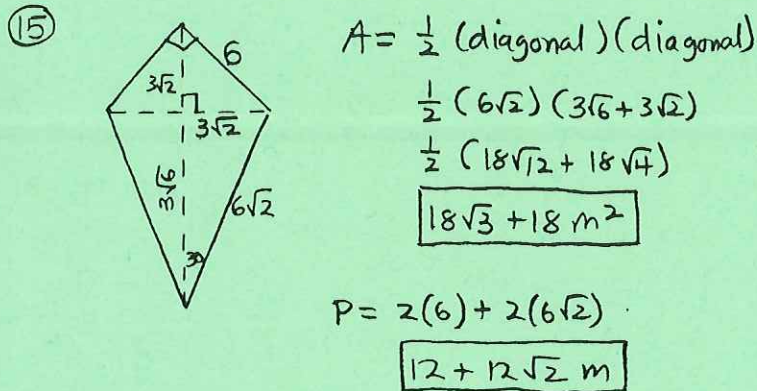 ⑮
6
3√2
3√2
3√6
6√2
30
A = 1/2 (diagonal)(diagonal)
1/2 (6√2)(3√6+3√2)
1/2 (18√12 + 18√4)
18√3 + 18 m²
P = 2(6) + 2(6√2)
12 + 12√2 m